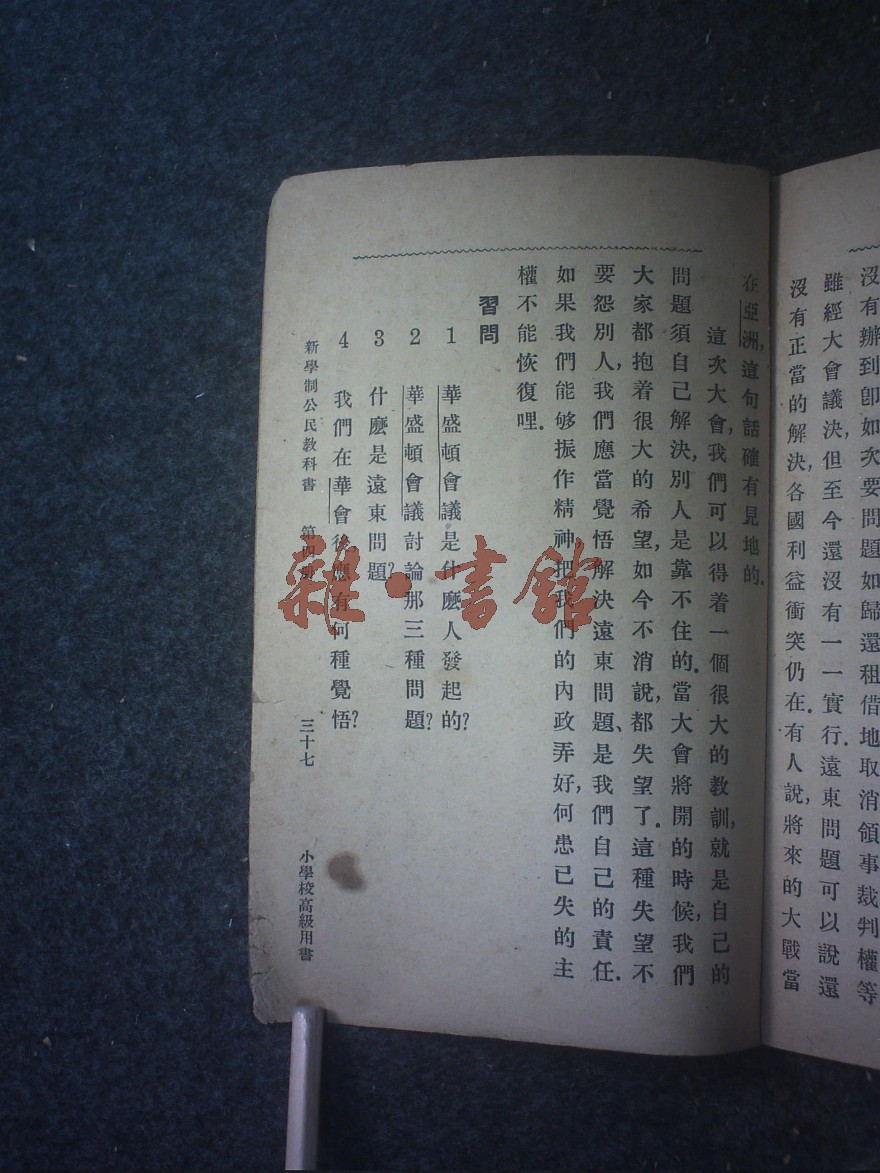 沒有辦到卽如次要問題如歸還租借地取消領事裁判權等
雖經大會議決,但至今還沒有一一實行.遠東問題可以說還
沒有正當的解決,各國利益衝突仍在.有人說,將來的大戰當
在亞洲,這句話確有見地的.
這次大會,我們可以得着一個很大的教訓,就是自己的
問題須自己解決,別人是靠不住的.當大會將開的時候,我們
大家都抱着很大的希望,如今不消說,都失望了.這種失望不
要怨別人,我們應當覺悟解決遠東問題、是我們自己的責任.
如果我們能够振作精神,把我們的內政弄好,何患已失的主
權不能恢復哩.
習問
1 華盛頓會議是什麼人發起的?
2 華盛頓會議討論那三種問題?
3 什麼是遠東問題?
4 我們在華會後應有何種覺悟?
新學制公民教科書 第四册 三十七 小學校高級用書
雜·書館